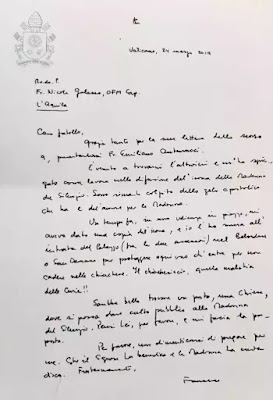 Vaticano, 24 marzo 2019
Rev.do P.
Fr. Nicola OFM Cap.
L'Aquila
Caro fratello,
grazie tante per la sua lettera dello scorso
9, presentandomi Fr. Emiliano Antenucci.
È venuto a trovarmi l'altroieri e mi ha spie-
gato come lavora nella diffusione dell'icona della Madonna
del Silenzio. Sono rimasto colpito dello zelo apostolico
che ha e dell'amore per la Madonna.
Un tempo fa, in una udienza in piazza, mi
aveva dato una copia dell'icona, e io l'ho messa all'
entrata del Palazzo (tra le due ascensori) nel
San Damaso per proteggere ogni uno che entra per non
cadere nelle chiacchiere. Il chiacchiericcio, quella malattia
delle Curie!!
Sarebbe bello trovare un posto, una Chiesa,
dove si possa dare culto pubblico alla Madonna
del Silenzio. Pensi Lei, per favore, e mi faccia la pro-
posta.
Per favore, non dimenticarsi di pregare per
me. Che il Signore La benedica e la Madonna La custo-
disca. Fraternamente,
Francesco